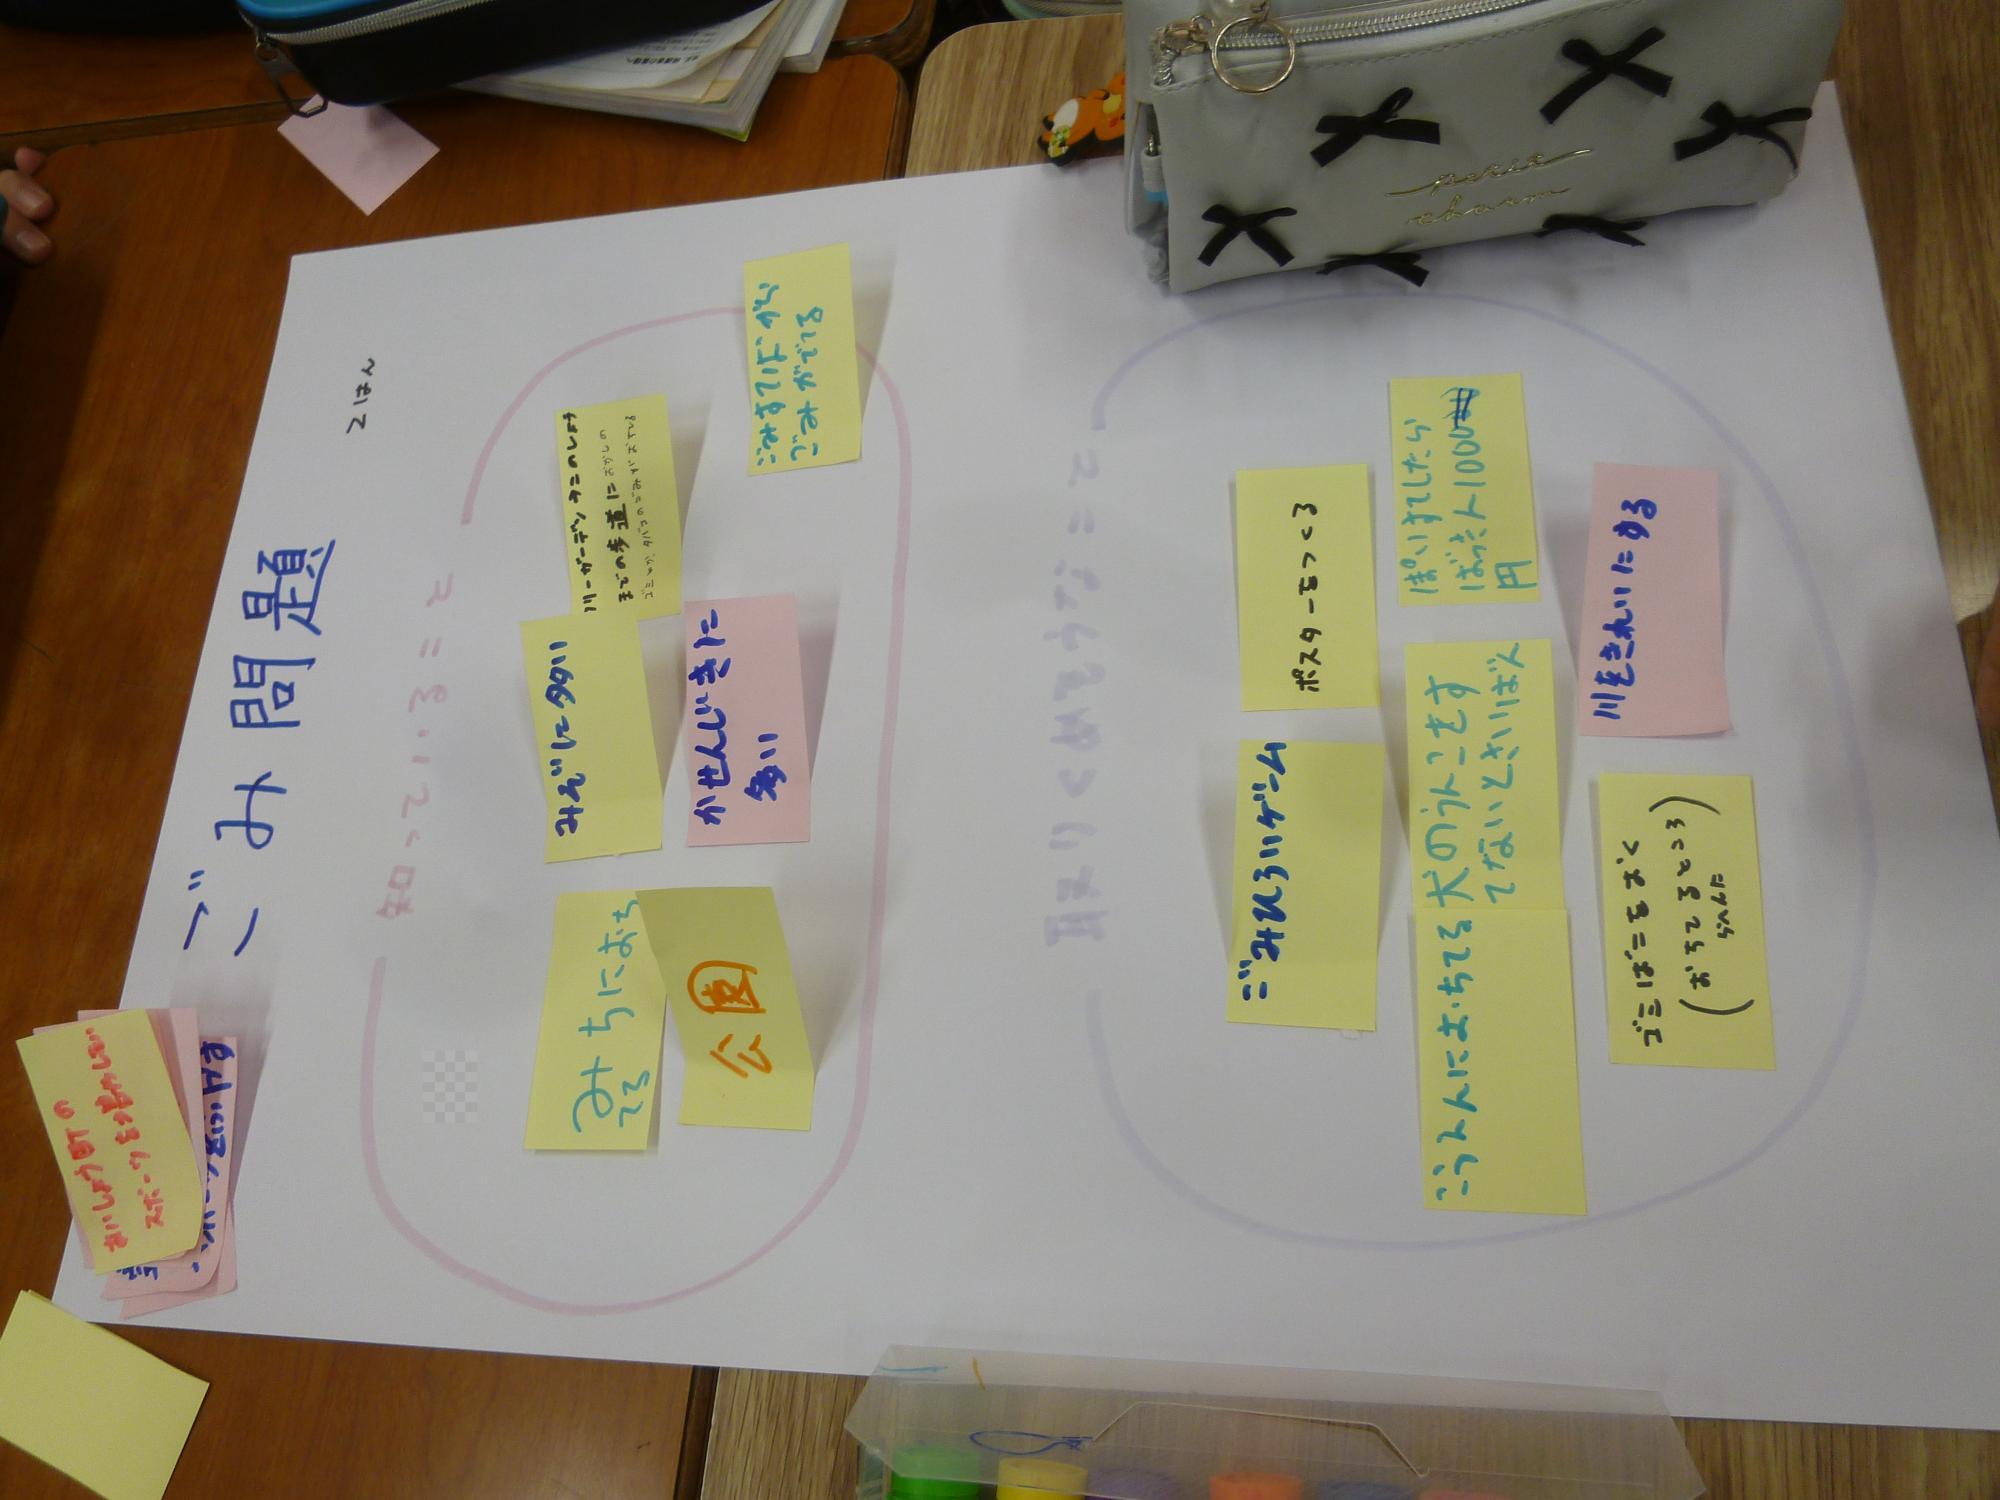 ごみ問題
2はん
知っていること
みちにおち
てる
公園
みぞに多い
かせんじきに
多い
川ーガーデンテニのしょ
までの歩道におかしの
ごみすてばから
ごみがでてる
取りくめそうなこと
ごみひろいゲーム
ポスターをつくる
こうえんにおちてる
犬のうんこをす
てないとさいばん
ぽいすてしたら
ばっきん1000
円
ゴミばこをおく
(おちてるところ
らへんに)
川をきれいにする
スポーツ
petit
charm